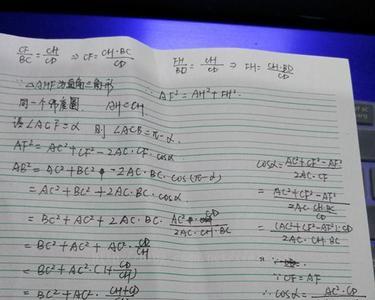 CF/BC = CH/CD ⇒ CF = CH·BC/CD
FH/BD = CH/CD ⇒ FH = CH·BD/CD
∵△AHF为直角三角形 ∴AF² = AH² + FH².
同一个 AH=CH
设∠ACF=α 则∠ACB=π-α.
AF² = AC² + CF² - 2AC·CF·cosα
AB² = AC² + BC² - 2AC·BC·cos(π-α)
= AC² + BC² + 2AC·BC·cosα.
= BC² + AC² + 2AC·BC· AC²·CD/2AC·CH·BC
= BC² + AC² + AC²·CD/CH
= BC² + AC²·(1+CD/CH)
= BC² + AC²·CH+CD/CH
cosα = AC²+CF²-AF²/2AC·CF
= AC²+CF²-AF²/2AC·CH·BC/CD
= (AC²+CF²-AF²)·CD/2AC·CH·BC
∵CF=AF
∴cosα = AC²·CD